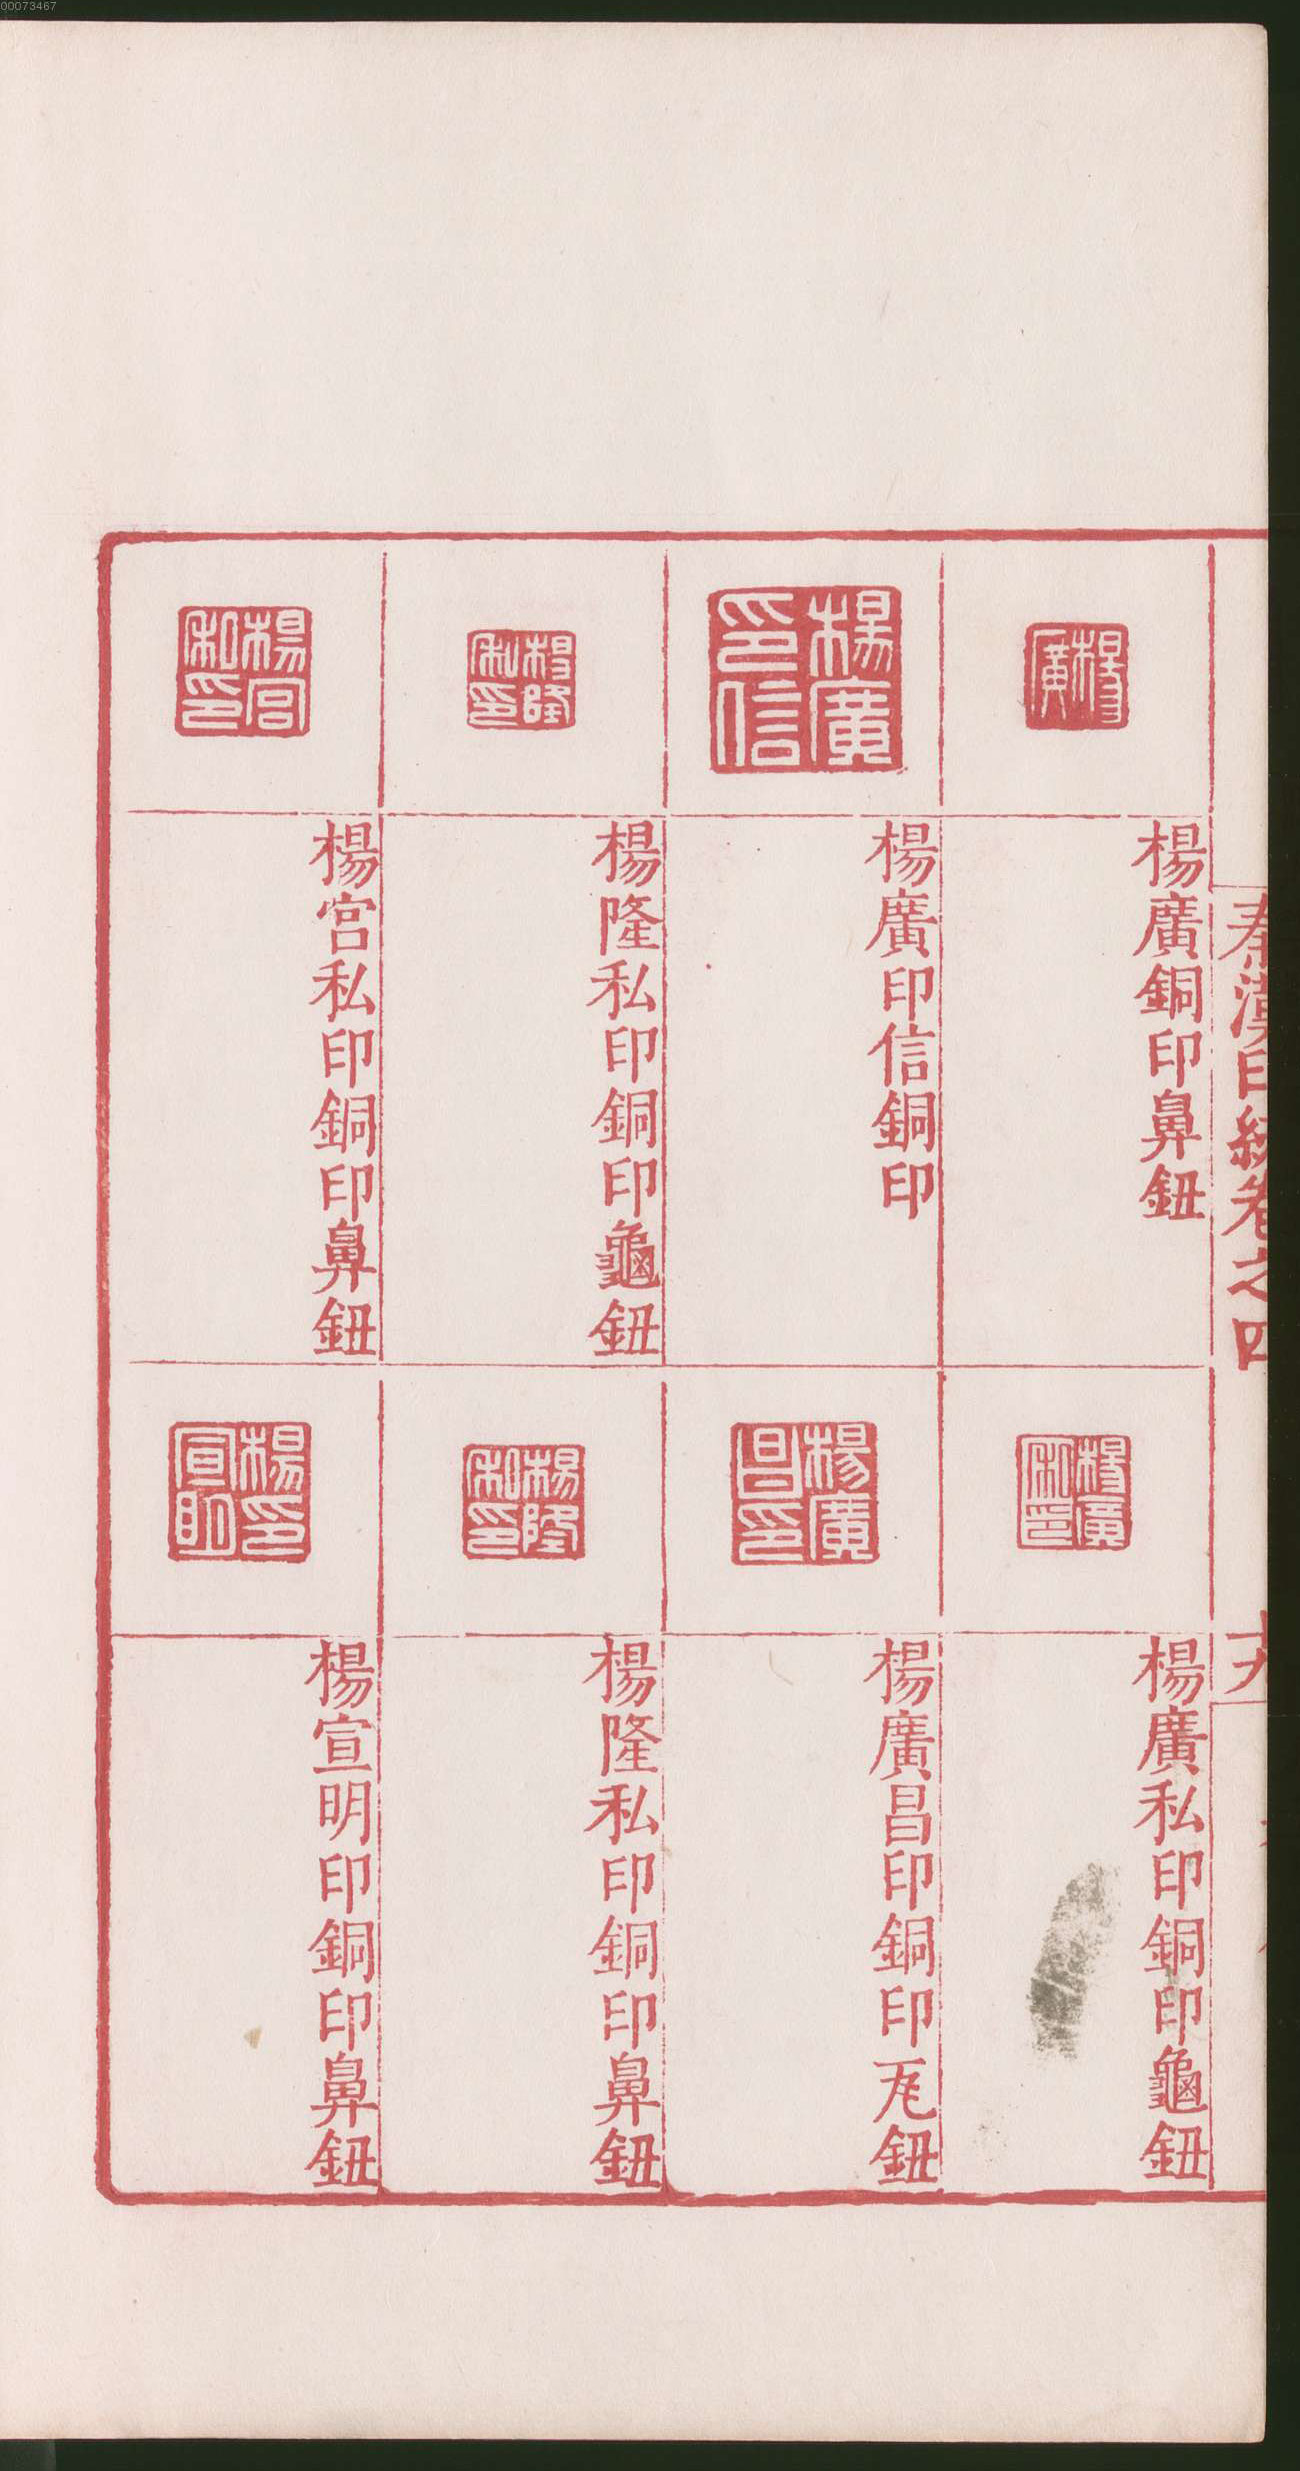 00073467
秦漢印統卷之四
楊廣
楊廣銅印鼻鈕
楊廣印信
楊廣印信銅印
楊隆私印
楊隆私印銅印龜鈕
楊宮私印
楊宮私印銅印鼻鈕
楊廣私印
楊廣私印銅印龜鈕
楊廣昌印
楊廣昌印銅印瓦鈕
楊隆私印
楊隆私印銅印鼻鈕
楊印宣明
楊宣明印銅印鼻鈕